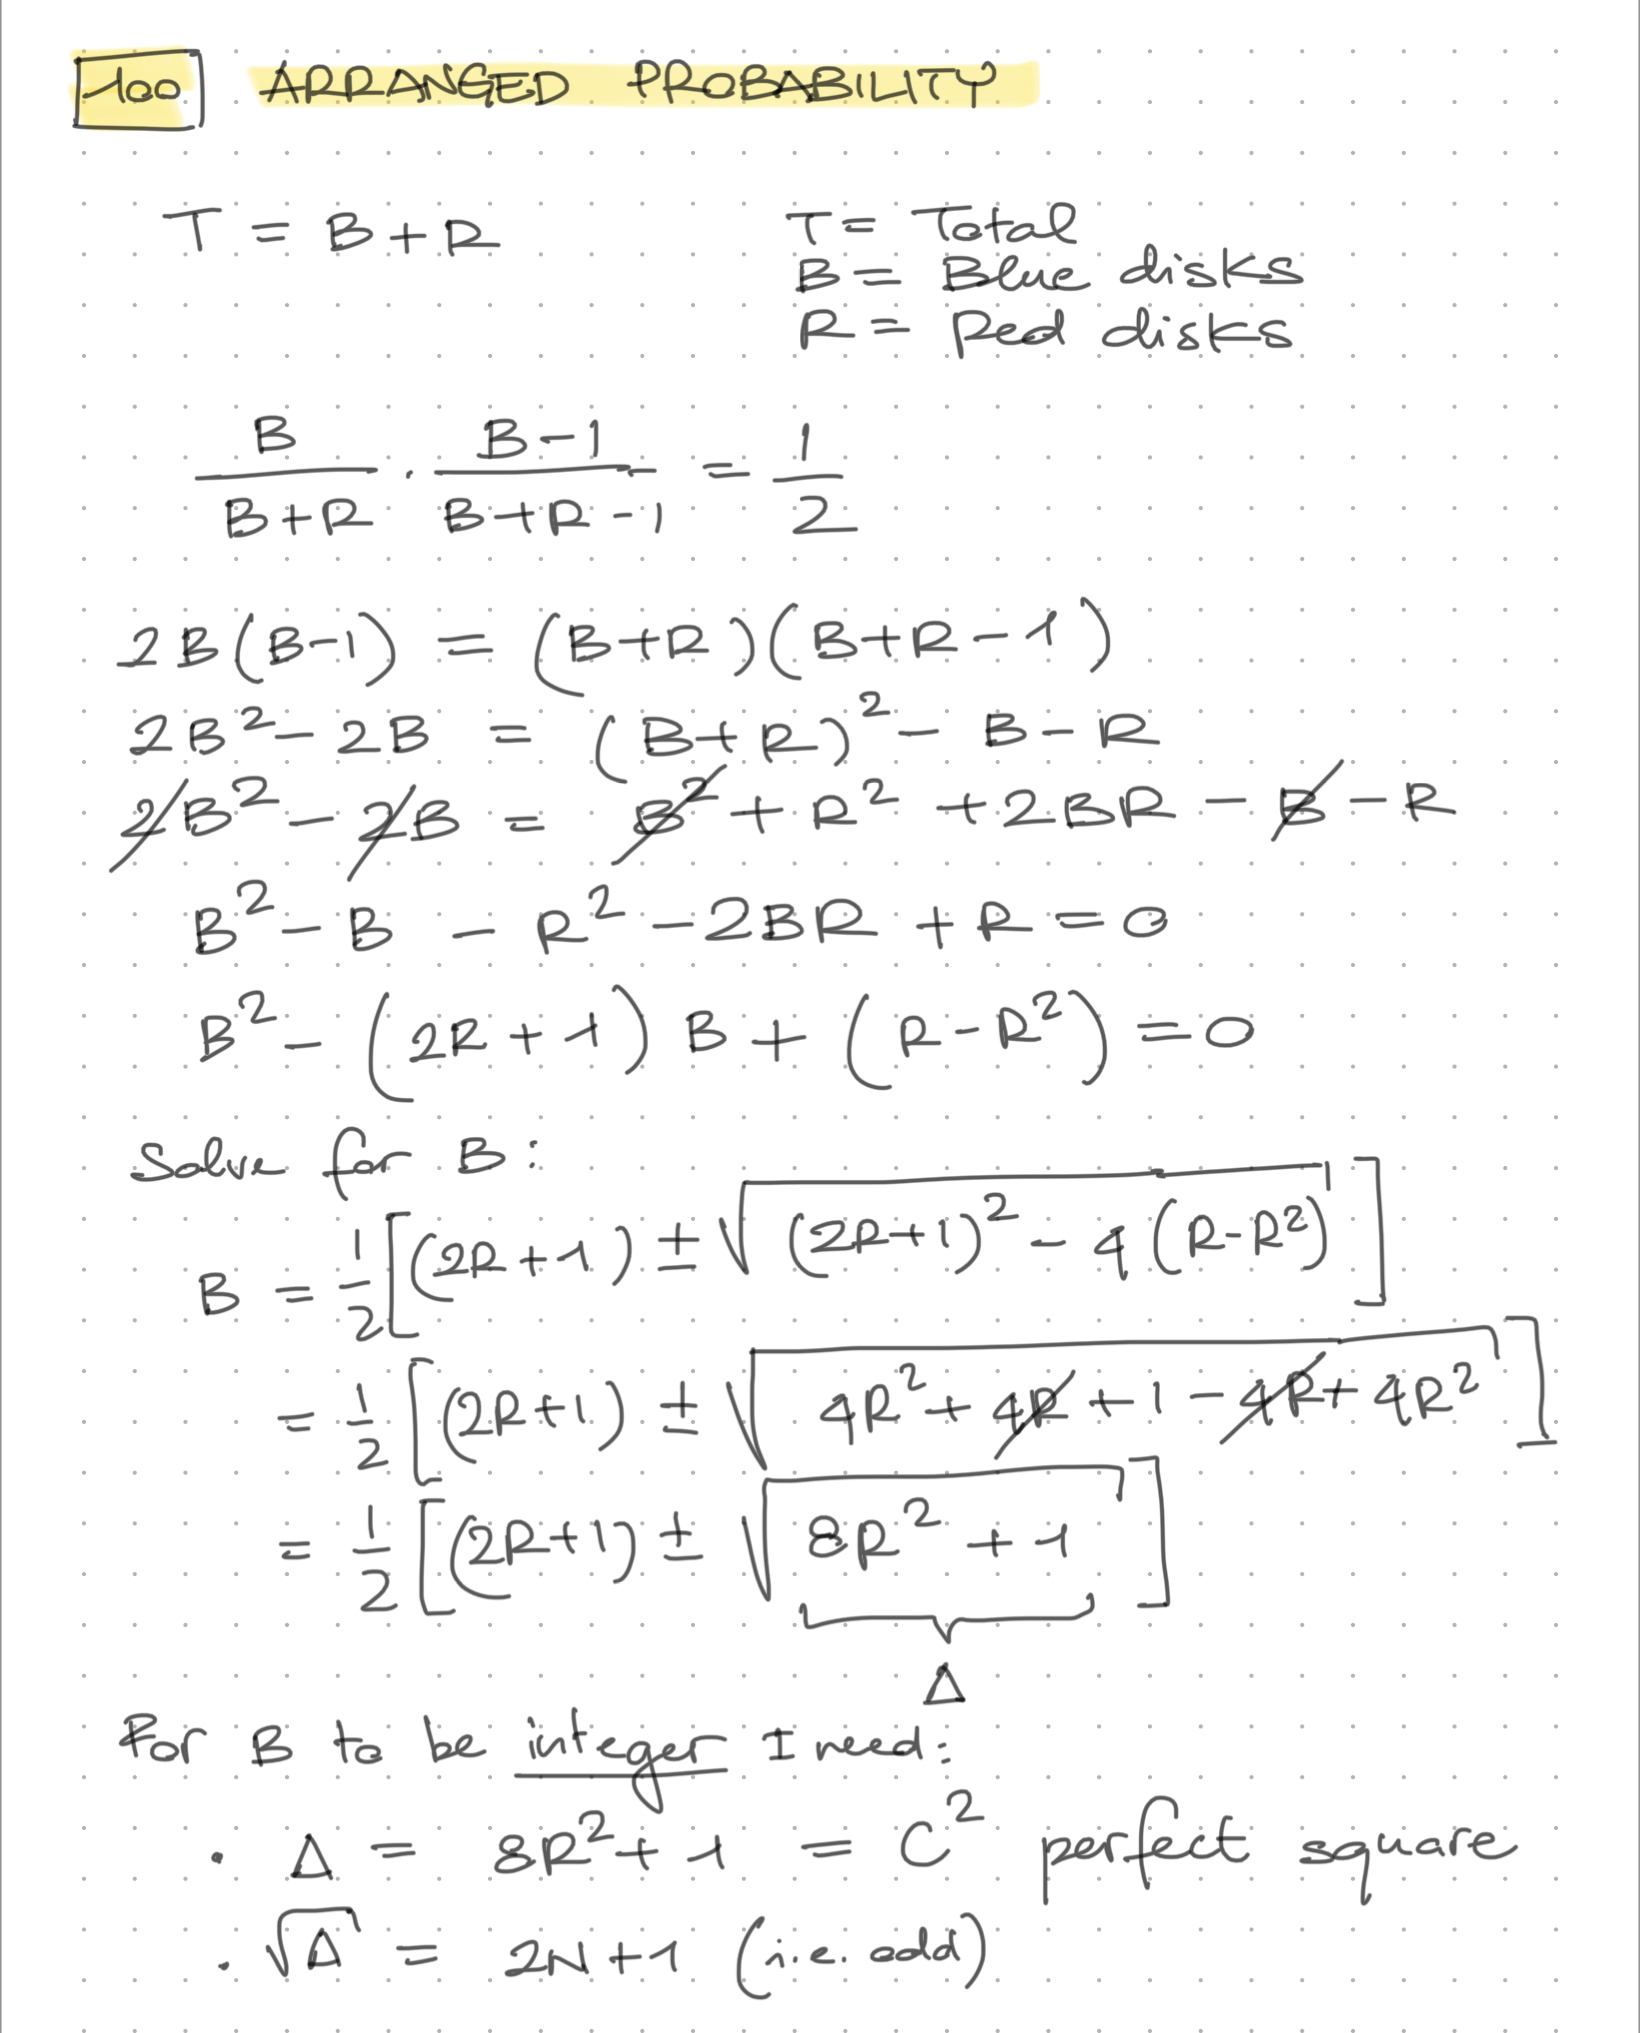 100 ARRANGED PROBABILITY
T = B+R
T = Total
B = Blue disks
R = Red disks
B/(B+R) · (B-1)/(B+R-1) = 1/2
2B(B-1) = (B+R)(B+R-1)
2B² - 2B = (B+R)² - B - R
2B² - 2B = B² + R² + 2BR - B - R
B² - B - R² - 2BR + R = 0
B² - (2R+1) B + (R-R²) = 0
Solve for B:
B = 1/2 [(2R+1) ± √((2R+1)² - 4(R-R²))]
= 1/2 [(2R+1) ± √(4R² + 4R + 1 - 4R + 4R²)]
= 1/2 [(2R+1) ± √(8R² + 1)]
Δ
For B to be integer I need:
· Δ = 8R² + 1 = C² perfect square
· √Δ = 2N+1 (i.e. odd)